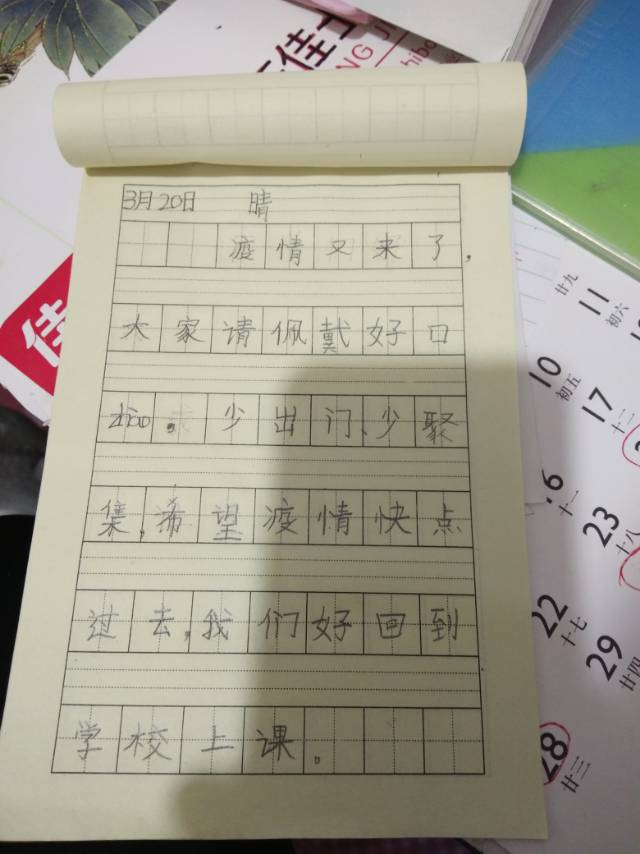 佳士
NG JI
hibo
3月20日 晴
疫情又来了,
大家请佩戴好口
zhao。少出门、少聚
集,希望疫情快点
过去,我们好回到
学校上课。
佳
廿九
11
初六
10
初五
17
十二
16
十一
23
十八
22
十七
29
廿四
28
廿三